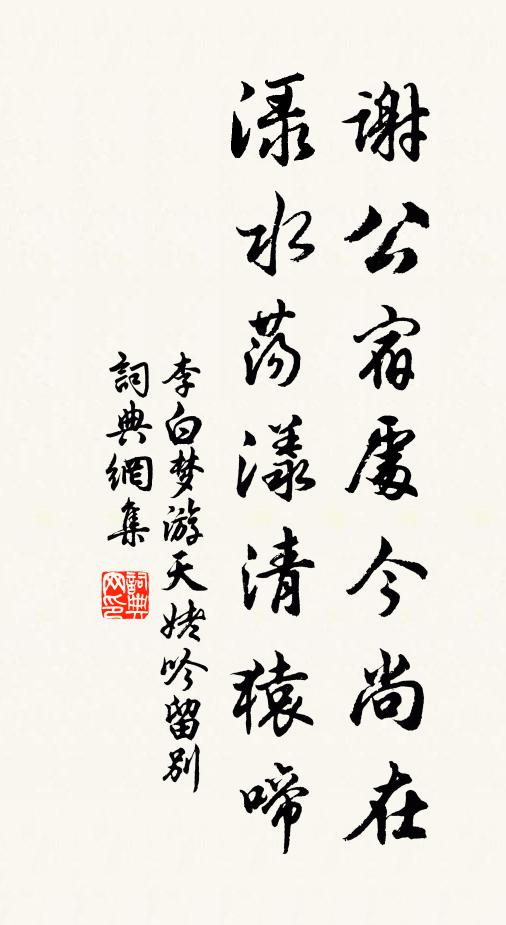 謝公宿處今尚在
淥水荡漾清猿啼
李白梦游天姥吟留别
詞典網集
詞典网印